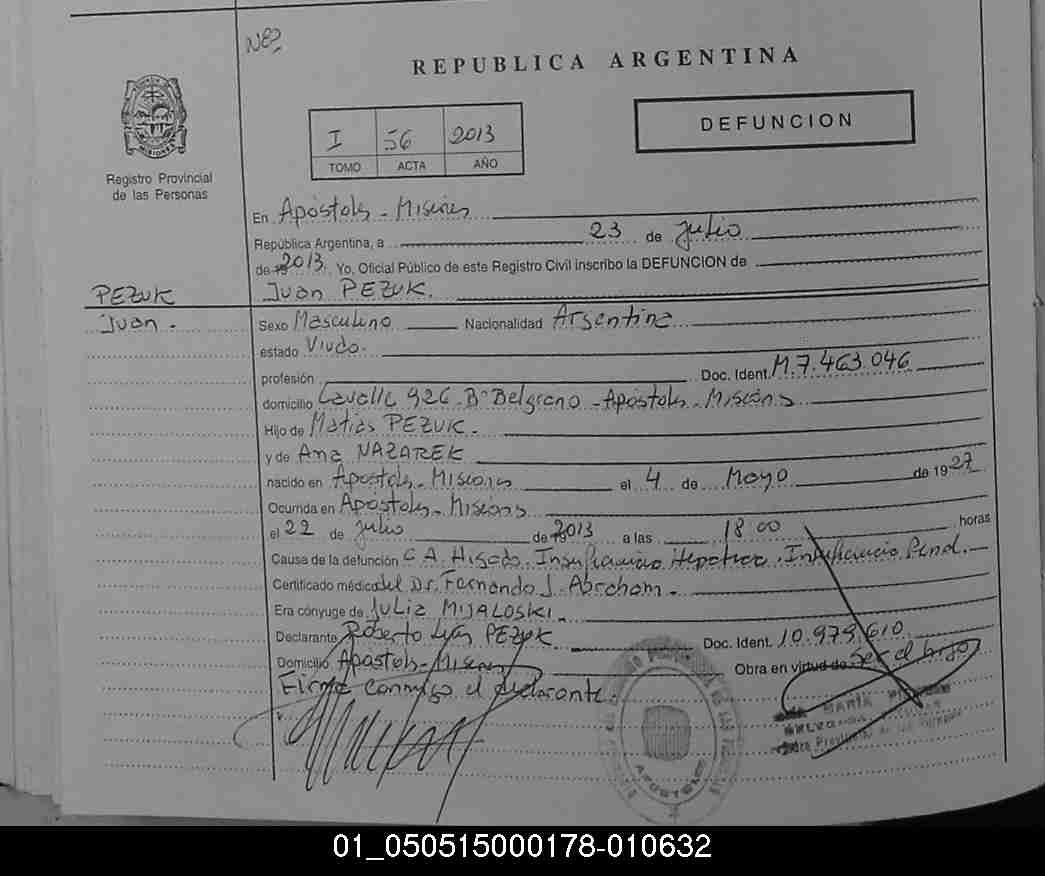 Nº2
REPUBLICA ARGENTINA
I 56 2013
TOMO ACTA AÑO
DEFUNCION
MISIONES
Registro Provincial
de las Personas
En Apóstoles - Misiones
República Argentina, a 23 de Julio
de 2013. Yo, Oficial Público de este Registro Civil inscribo la DEFUNCION de
PEZUK Juan PEZUK.
Juan. Sexo Masculino Nacionalidad Argentina
estado Viudo.
profesión Doc. Ident. M.7.463.046
domicilio Lavalle 926 Bº Belgrano - Apóstoles - Misiones
Hijo de Matias PEZUK.
y de Ana NAZAREK
nacido en Apostoles - Misiones el 4 de Mayo de 1927
Ocurrida en Apóstoles - Misiones
el 22 de Julio de 2013 a las 18 00 horas
Causa de la defunción C.A. Higado. Insuficiencia Hepatica. Insuficiencia Renal.
Certificado médico del Dr. Fernando J. Abraham.
Era cónyuge de Julia MIJALOSKI.
Declarante Roberto PEZUK Doc. Ident. 10.979.610
Domicilio Apostoles - Misiones Obra en virtud de Ser el hijo
Firma conmigo el declarante.
MARÍA
APOSTOLES
01_050515000178-010632